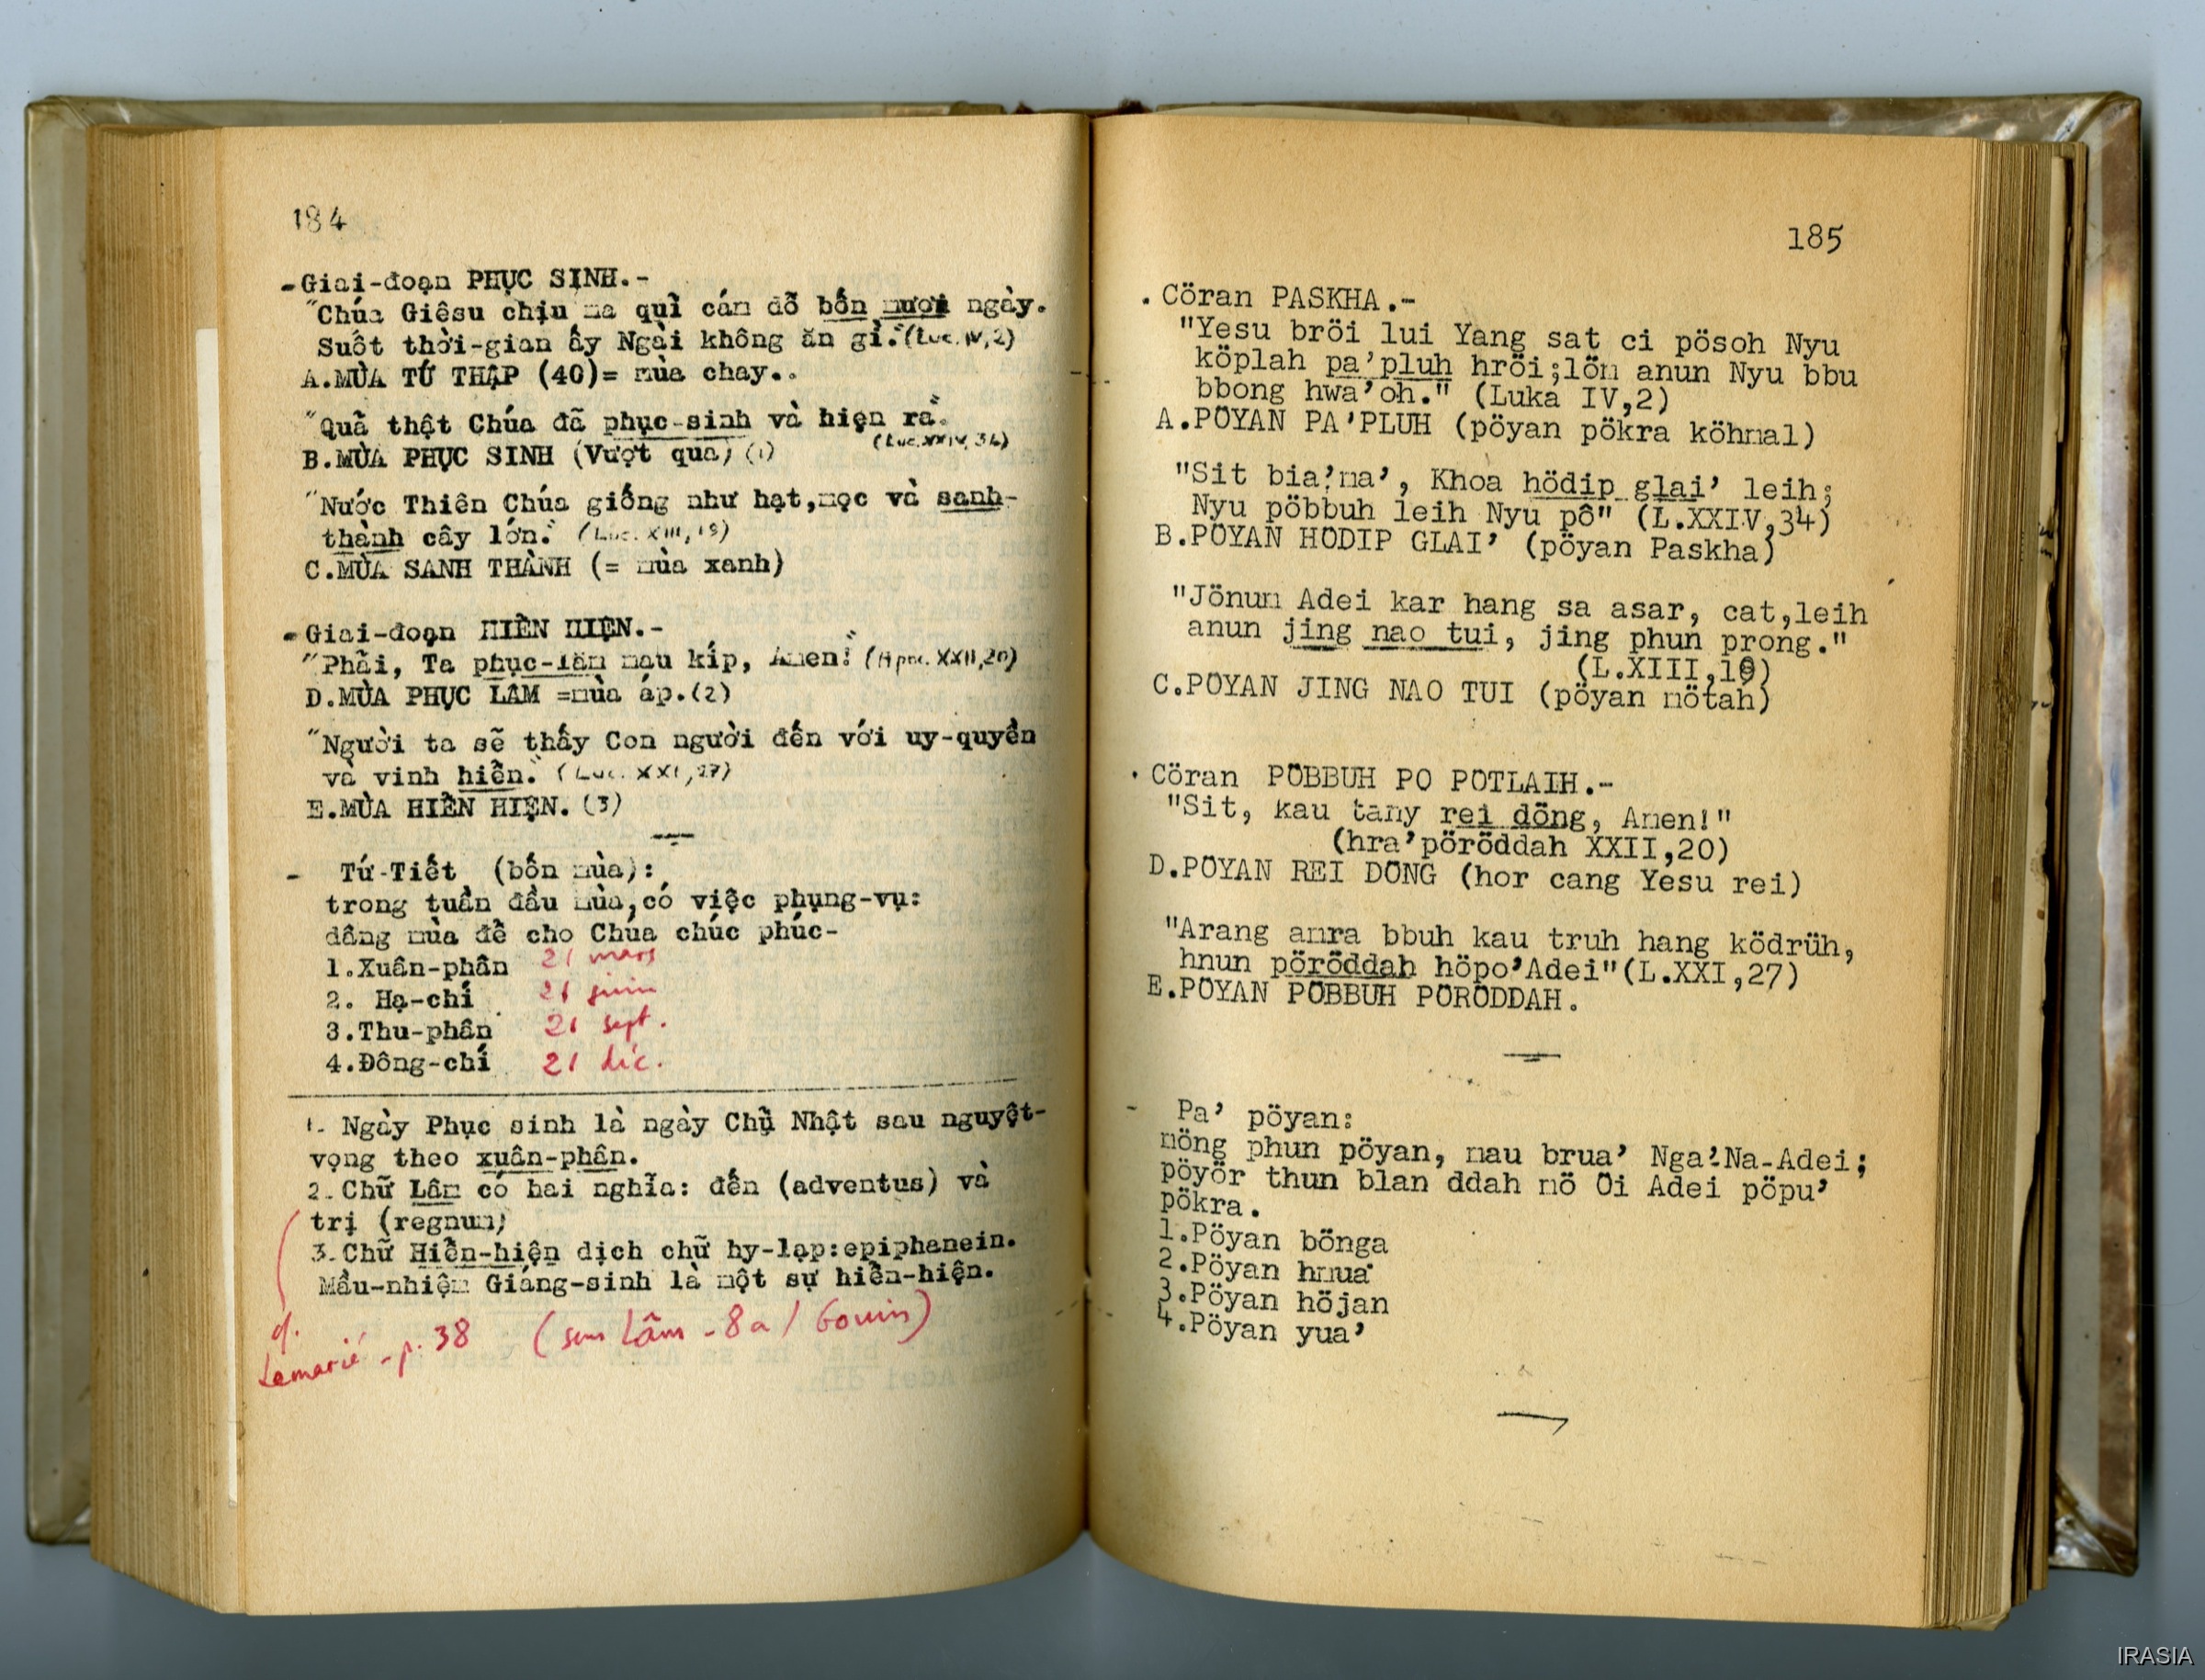 184
-Giai-đoạn PHỤC SINH.-
"Chúa Giêsu chịu ma quỉ cám dỗ bốn mươi ngày.
Suốt thời-gian ấy Ngài không ăn gì."(Luc. IV,2)
A.MÙA TỨ THẬP (40)= mùa chay..
"Quả thật Chúa đã phục-sinh và hiện ra"
(Luc.XXIV,34)
B.MÙA PHỤC SINH (Vượt qua) (1)
"Nước Thiên Chúa giống như hạt,mọc và sanh-
thành cây lớn." (Luc. XIII,19)
C.MÙA SANH THÀNH (= mùa xanh)
-Giai-đoạn HIỂN HIỆN.-
"Phải, Ta phục-lâm mau kíp, Amen!" (Apoc. XXII,20)
D.MÙA PHỤC LÂM =mùa áp.(2)
"Người ta sẽ thấy Con người đến với uy-quyền
và vinh hiển." (Luc. XXI,27)
E.MÙA HIỂN HIỆN. (3)
- Tứ-Tiết (bốn mùa):
trong tuần đầu mùa,có việc phụng-vụ:
dâng mùa để cho Chúa chúc phúc-
1.Xuân-phân 21 mars
2. Hạ-chí 21 juin
3.Thu-phân 21 sept.
4.Đông-chí 21 déc.
1. Ngày Phục sinh là ngày Chủ Nhật sau nguyệt-
vọng theo xuân-phân.
2. Chữ Lâm có hai nghĩa: đến (adventus) và
trị (regnum)
3.Chữ Hiển-hiện dịch chữ hy-lạp:epiphanein.
Mầu-nhiệm Giáng-sinh là một sự hiển-hiện.
cf.
Lemarié - p. 38 (sens Lâm - 8a / Gouin)
185
. Cöran PASKHA.-
"Yesu bröi lui Yang sat ci pösoh Nyu
köplah pa'pluh hröi;lön anun Nyu bbu
bbong hwa'oh." (Luka IV,2)
A.PÖYAN PA'PLUH (pöyan pökra köhmal)
"Sit bia'ma', Khoa hödip glai' leih;
Nyu pöbbuh leih Nyu pô" (L.XXIV,34)
B.PÖYAN HÖDIP GLAI' (pöyan Paskha)
"Jönum Adei kar hang sa asar, cat,leih
anun jing nao tui, jing phun prong."
(L.XIII,19)
C.PÖYAN JING NAO TUI (pöyan mötah)
. Cöran PÖBBUH PO PÖTLAIH.-
"Sit, kau tany rei döng, Amen!"
(hra'pöröddah XXII,20)
D.PÖYAN REI DÖNG (hor cang Yesu rei)
"Arang amra bbuh kau truh hang ködrüh,
hnun pöröddah höpo'Adei"(L.XXI,27)
E.PÖYAN PÖBBUH PÖRÖDDAH.
- Pa' pöyan:
nöng phun pöyan, mau brua' Nga'Na-Adei;
pöyör thun blan ddah mö Öi Adei pöpu'
pökra.
1.Pöyan bönga
2.Pöyan hmua'
3.Pöyan höjan
4.Pöyan yua'
IRASIA